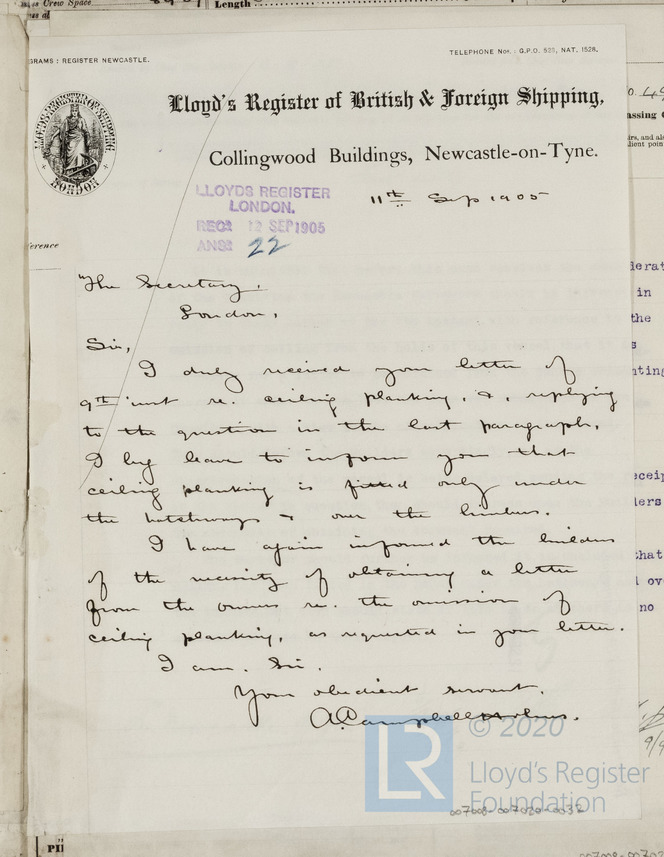 as Crew Space
Length
GRAMS: REGISTER NEWCASTLE.
TELEPHONE Nos.: G.P.O. 523, NAT. 1528.
LLOYD'S REGISTER OF BRITISH & FOREIGN SHIPPING
LONDON
Lloyd's Register of British & Foreign Shipping,
Collingwood Buildings, Newcastle-on-Tyne.
LLOYDS REGISTER
LONDON.
RECD 12 SEP 1905
ANSD 22
11th Sep 1905
The Secretary,
London,
Sir,
I duly received your letter of
9th inst re. ceiling planking, &, replying
to the question in the last paragraph,
I beg leave to inform you that
ceiling planking is fitted only under
the hatchways & over the limbers.
I have again informed the builders
of the necessity of obtaining a letter
from the owners re. the omission of
ceiling planking, as requested in your letter.
I am. Sir,
Your obedient servant,
A. Campbell Holmes.
© 2020
LR
Lloyd's Register
Foundation
007008-007020-0032
ference
in
the
that
no